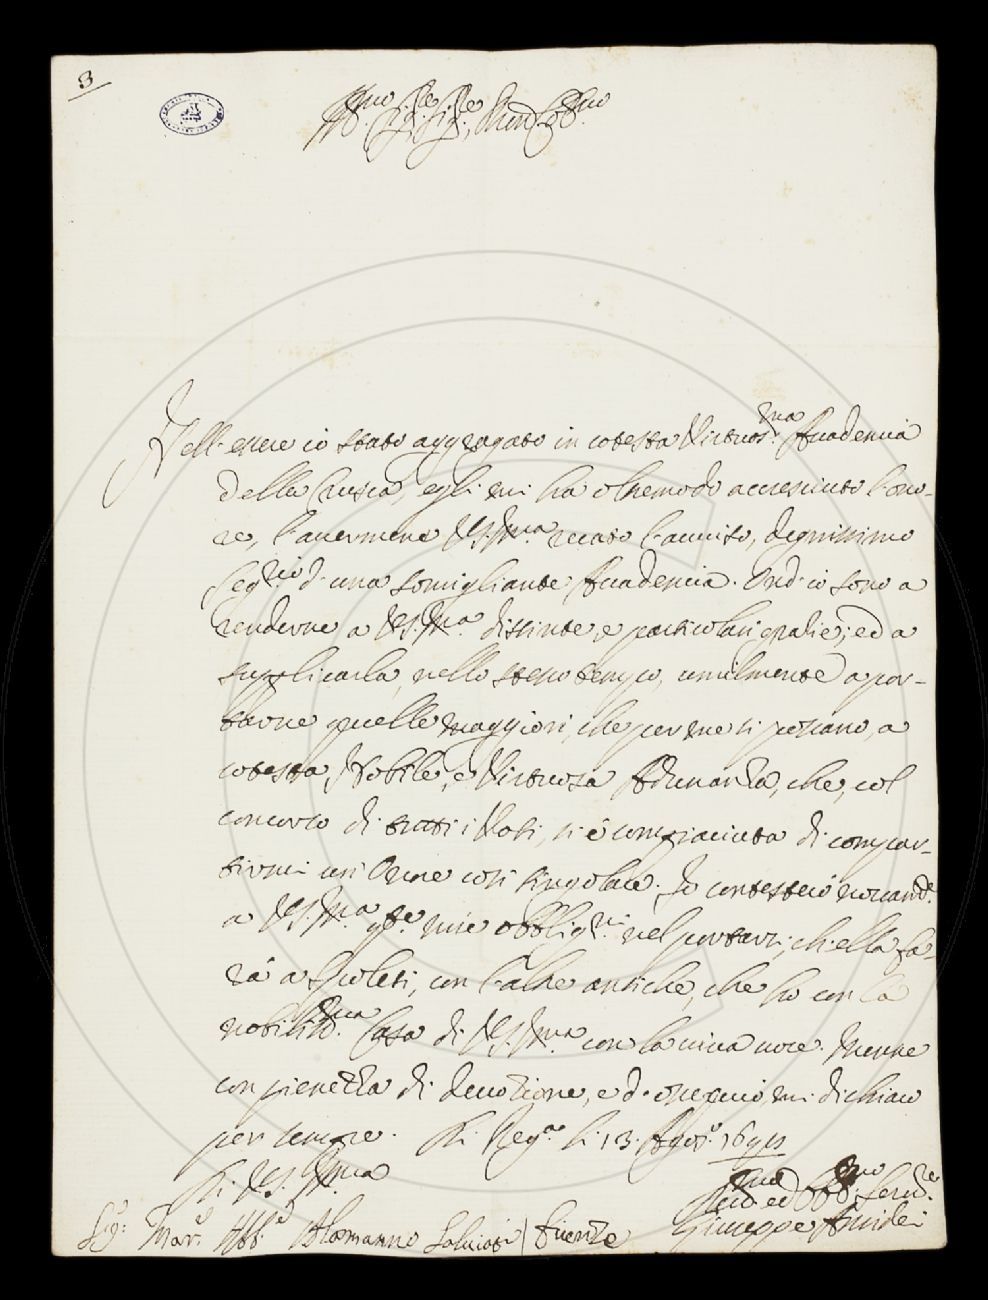 3
Ill.mo Sig.re Sig.re, Pron Col.mo
Nell'essere io stato aggregato in cotesta Virtuos.ma Accademia
della Crusca, egli mi ha oltremodo accresciuto l'ono-
re, l'avermene V.S. Ill.ma recato l'avviso, degnissimo
Seg.rio d'una somigliante Accademia. Ond'io sono a
renderne a V.S. Ill.ma distinte, e particolari grazie; ed a
supplicarla, nello stesso tempo, umilmente a por-
tarne quelle maggiori, che per me si possano, a
cotesta Nobile, e Virtuosa Adunanza, che, col
concorso di tutti i Voti, si è compiaciuta di compar-
tirmi un Onore così singolare. Io contesterò
a V.S. Ill.ma q.te mie obblig.ni nel portarsi, ch'ella fa-
rà a Spoleti, con l'altre antiche, che ho con la
nobiliss.ma Casa di V.S. Ill.ma con la viva voce. Mentre
con pienezza di devozione, e d'ossequio, mi dichiaro
per sempre. Di
Di V.S. Ill.ma
Giuseppe
Sig.r Mar. Abb.e Alamanno Salviati / Firenze